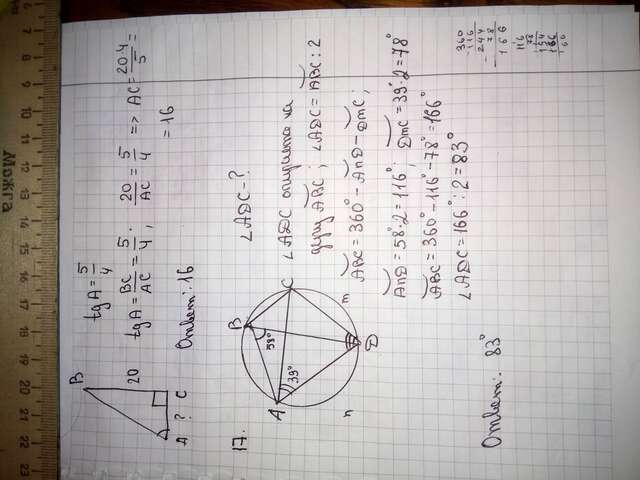 Можга
23 22 21 20 19 18 17 16 15 14 13 12 11 10 9 8 7 6
B
20
A ? C
tg A = 5/4
tg A = BC/AC = 5/4; 20/AC = 5/4 => AC = 20·4/5 =
= 16
Ответ: 16
17.
B
58°
A
39°
C
n
m
D
∠ADC - ?
∠ADC опирается на
дугу ABC; ∠ADC = ABC : 2
ABC = 360° - AnD - DmC;
AnD = 58°·2 = 116°; DmC = 39°·2 = 78°
ABC = 360° - 116° - 78° = 166°
∠ADC = 166° : 2 = 83°
Ответ: 83°
360
116
244
78
166
116
78